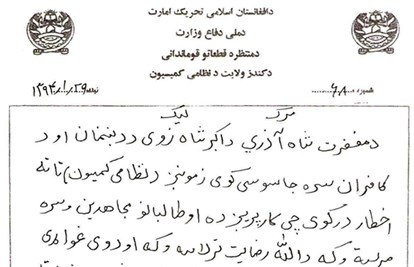 دافغانستان اسلامي تحریک امارت
دملي دفاع وزارت
دمنتظره قطعاتو قوماندانی
دکندز ولایت د نظامی کمیسیون
شمېره ۶۸۰
نېټه ۱۳۹۴/۱/۲۹
مرګ لیک
دمغفرت شاه آذري داکبرشاه زوی ددښمنان او د
کافران سره جاسوسي کوی زمونږ د نظامی کمیون) تا ته
اخطار درکوی چی کار پریږده او طالبانو مجاهدین وسره
وکه دالله رضایت ترلاسه وکه او دوی غواړی